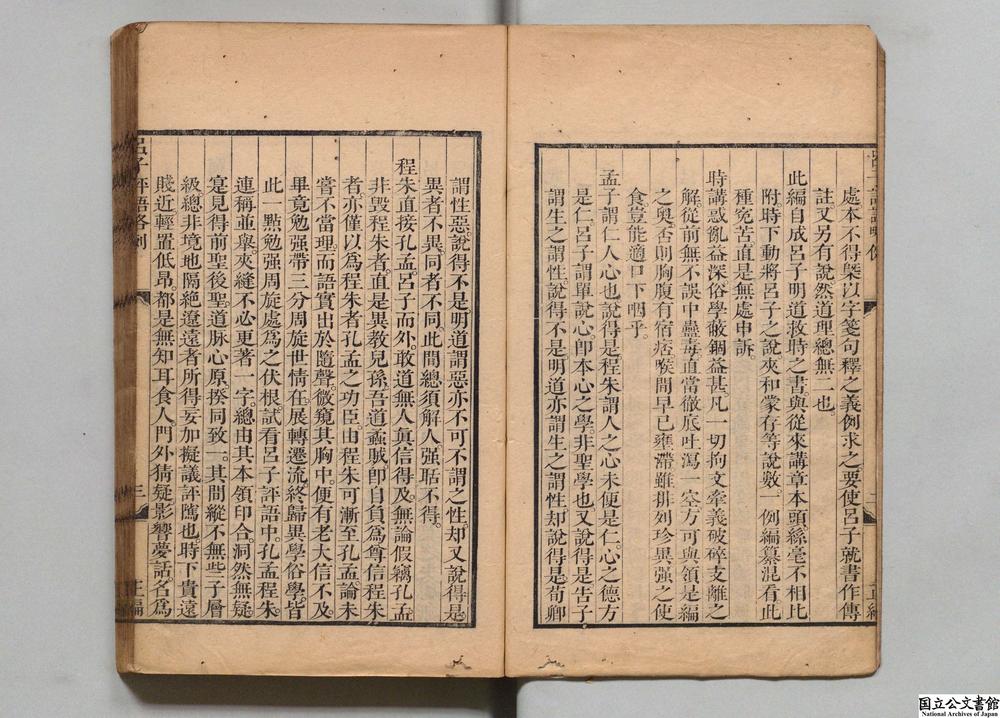 處本不得槩以字箋句釋之義例求之要使呂子就書作傳
註又另有說然道理總無二也
此編自成呂子明道救時之書與從來講章本頭絲毫不相比
附時下動將呂子之說夾和蒙存等說數一例編纂混看此
種寃苦直是無處申訴
時講惑亂益深俗學蔽錮益甚凡一切拘文牽義破碎支離之
解從前無不誤中蠱毒直當徹底吐瀉一空方可與領是編
之奧否則胸腹有宿痞喉間早已壅滯雖排列珍異强之使
食豈能適口下咽乎
孟子謂仁人心也說得是程朱謂人之心未便是仁心之德方
是仁呂子謂單說心卽本心之學非聖學也又說得是吿子
謂生之謂性說得不是明道亦謂生之謂性却說得是荀卿
呂子評語略例
三
正編
謂性惡說得不是明道謂惡亦不可不謂之性却又說得是
異者不異同者不同此間總須解人强聒不得
程朱直接孔孟呂子而外敢道無人眞信得及無論假竊孔孟
非毀程朱者直是異敎兒孫吾道蟊賊卽自負爲尊信程朱
者亦僅以爲程朱者孔孟之功臣由程朱可漸至孔孟論未
嘗不當理而語實出於隨聲微窺其胸中便有老大信不及
畢竟勉强帶三分周旋世情在展轉遷流終歸異學俗學皆
此一點勉强周旋處爲之伏根試看呂子評語中孔孟程朱
連稱並舉夾縫不必更著一字總由其本領印合洞然無疑
寔見得前聖後聖道脉心原揆同致一其間縱不無些子層
級總非境地隔絶遼遠者所得妄加擬議評隲也時下貴遠
賤近輕置低昂都是無知耳食人門外猜疑影響夢話名爲